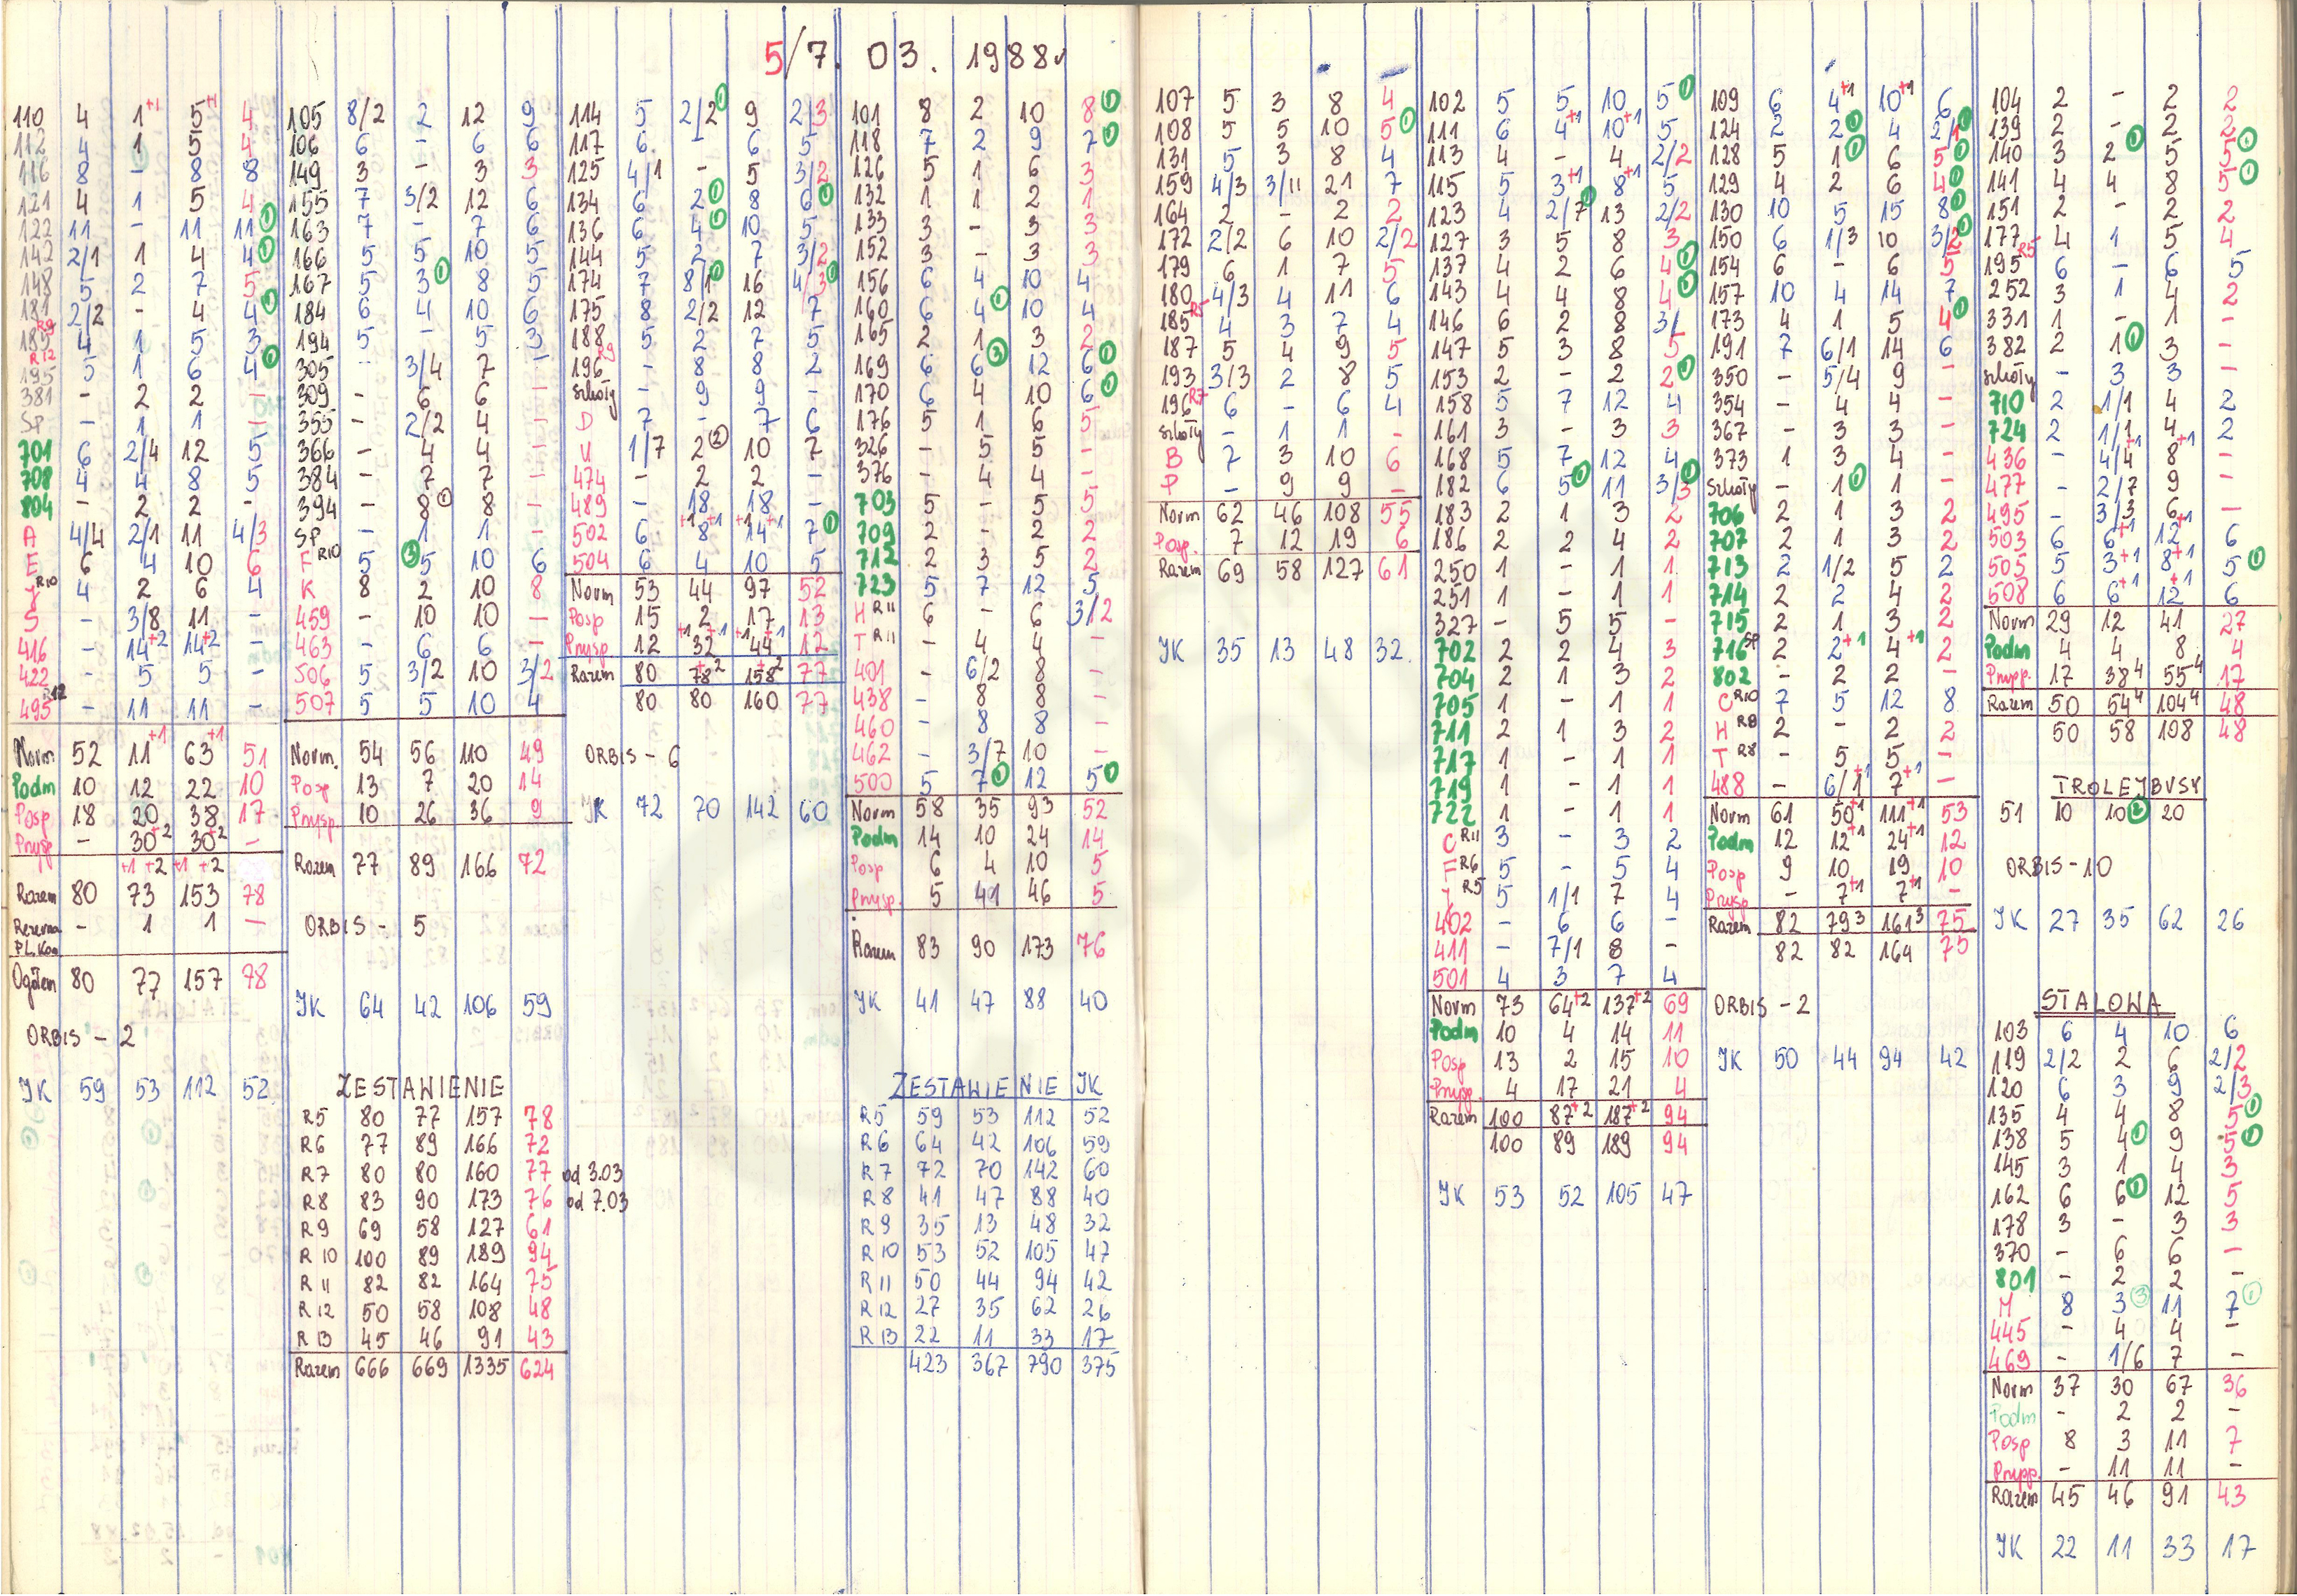 5/7. 03. 1988r
110 4 1+1 5+1 4
112 4 1 5 4
116 8 - 8 8
121 4 1 5 4
122 11 - 11 11 ①
142 2/1 1 4 4 ①
148 5 2 7 5
181 2/2 - 4 4 ①
185 R9 4 1 5 3
195 R12 5 1 6 4 ①
381 - 2 2 -
SP - 1 1 -
701 6 2/4 12 5
708 4 4 8 5
804 - 2 2 -
A 4/4 2/1 11 4/3
E 6 4 10 6
Y R10 4 2 6 4
S - 3/8 11 -
416 - 14+2 14+2 -
422 - 5 5 -
495 R12 - 11 11 -
Norm 52 11+1 63+1 51
Podm 10 12 22 10
Posp 18 20 38 17
Przysp - 30+2 30+2 -
+1 +2 +1 +2
Razem 80 73 153 78
Rezerwa Pl. Kon - 1 1 -
Ogółem 80 77 157 78
ORBIS - 2
JK 59 53 112 52
105 8/2 2 12 9
106 6 - 6 6
149 3 - 3 3
155 7 3/2 12 6
163 7 - 7 6
166 5 5 10 5
167 5 3 ① 8 5
184 6 4 10 6
194 5 - 5 3
305 - 3/4 7 -
309 - 6 6 -
355 - 2/2 4 -
366 - 4 4 -
384 - 7 7 -
394 - 8 ① 8 -
SP - 1 1 -
F R10 5 ③ 5 10 6
K 8 2 10 8
459 - 10 10 -
463 - 6 6 -
506 5 3/2 10 3/2
507 5 5 10 4
Norm. 54 56 110 49
Posp 13 7 20 14
Przysp 10 26 36 9
Razem 77 89 166 72
ORBIS - 5
JK 64 42 106 59
ZESTAWIENIE
R5 80 77 157 78
R6 77 89 166 72
R7 80 80 160 77 od 3.03
R8 83 90 173 76 od 7.03
R9 69 58 127 61
R10 100 89 189 94
R11 82 82 164 75
R12 50 58 108 48
R13 45 46 91 43
Razem 666 669 1335 624
114 5 2/2 ① 9 2/3
117 6 - 6 5
125 4/1 - 5 3/2
134 6 2 ① 8 6 ①
136 6 4 ① 10 5
144 5 2 7 3/2
174 7 8/1 ① 16 4/3 ①
175 8 2/2 12 7
188 5 2 7 5
196 R9 - 8 8 2
szkoły - 9 9 -
D 7 - 7 6
U 1/7 2 ② 10 7
474 - 2 2 -
489 - 18 18 -
502 6 +1 8+1 +1 14+1 7 ①
504 6 4 10 5
Norm 53 44 97 52
Posp 15 2 17 13
Przysp. 12 +1 32+1 +1 44+1 12
Razem 80 78+2 158+2 77
80 80 160 77
ORBIS - 6
JK 72 70 142 60
101 8 2 10 8 ①
118 7 2 9 7 ①
126 5 1 6 3
132 1 1 2 1
133 3 - 3 3
152 3 - 3 3
156 6 4 10 4
160 6 4 ① 10 4
165 2 1 3 2
169 6 6 ③ 12 6 ①
170 6 4 10 6 ①
176 5 1 6 5
326 - 5 5 -
376 - 4 4 -
703 5 - 5 5
709 2 - 2 2
712 2 3 5 2
723 5 7 12 5
H R11 6 - 6 3/2
T R11 - 4 4 -
401 - 6/2 8 -
438 - 8 8 -
460 - 8 8 -
462 - 3/7 10 -
500 5 7 ① 12 5 ①
Norm 58 35 93 52
Podm 14 10 24 14
Posp 6 4 10 5
Przysp. 5 41 46 5
Razem 83 90 173 76
JK 41 47 88 40
ZESTAWIENIE JK
R5 59 53 112 52
R6 64 42 106 59
R7 72 70 142 60
R8 41 47 88 40
R9 35 13 48 32
R10 53 52 105 47
R11 50 44 94 42
R12 27 35 62 26
R13 22 11 33 17
423 367 790 375
107 5 3 8 4
108 5 5 10 5 ①
131 5 3 8 4
159 4/3 3/11 21 7
164 2 - 2 2
172 2/2 6 10 2/2
179 6 1 7 5
180 4/3 4 11 6
185 R5 4 3 7 4
187 5 4 9 5
193 3/3 2 8 5
196 R7 6 - 6 4
szkoły - 1 1 -
B 7 3 10 6
P - 9 9 -
Norm 62 46 108 55
Posp. 7 12 19 6
Razem 69 58 127 61
JK 35 13 48 32.
102 5 5 10 5 ①
111 6 4+1 10+1 5
113 4 - 4 2/2
115 5 3+1 8+1 5
123 4 2/7 ① 13 2/2
127 3 5 8 3
137 4 2 6 4 ①
143 4 4 8 4 ①
146 6 2 8 3/
147 5 3 8 5
153 2 - 2 2 ①
158 5 7 12 4
161 3 - 3 3
168 5 7 12 4
182 6 5 ① 11 3/3 ①
183 2 1 3 2
186 2 2 4 2
250 1 - 1 1
251 1 - 1 1
327 - 5 5 -
702 2 2 4 3
704 2 1 3 2
705 1 - 1 1
711 2 1 3 2
717 1 - 1 1
719 1 - 1 1
722 1 - 1 1
C R11 3 - 3 2
F R6 5 - 5 4
Y R5 5 1/1 7 4
402 - 6 6 -
411 - 7/1 8 -
501 4 3 7 4
Norm 73 64+2 137+2 69
Podm 10 4 14 11
Posp 13 2 15 10
Przysp. 4 17 21 4
Razem 100 87+2 187+2 94
100 89 189 94
JK 53 52 105 47
109 6 4+1 10+1 6
124 2 2 ① 4 2/1 ①
128 5 1 ① 6 5 ①
129 4 2 6 4 ①
130 10 5 15 8 ①
150 6 1/3 10 3/2 ①
154 6 - 6 5
157 10 4 14 7
173 4 1 5 4 ①
191 7 6/1 14 6
350 - 5/4 9 -
354 - 4 4 -
367 - 3 3 -
373 1 3 4 -
Szkoły - 1 ① 1 -
706 2 1 3 2
707 2 1 3 2
713 2 1/2 5 2
714 2 2 4 2
715 2 1 3 2
716 SP 2 2+1 4+1 2
802 - 2 2 -
C R10 7 5 12 8
H R8 2 - 2 2
T R8 - 5 5 -
488 - 6/1+1 7+1 -
Norm 61 50+1 111+1 53
Podm 12 12+1 24+1 12
Posp 9 10 19 10
Przysp - 7+1 7+1 -
Razem 82 79 3 161 3 75
82 82 164 75
ORBIS - 2
JK 50 44 94 42
104 2 - 2 2
139 2 - 2 2 ①
140 3 2 ① 5 5 ①
141 4 4 8 5 ①
151 2 - 2 2
177 4 1 5 4
195 R5 6 - 6 5
252 3 1 4 2
331 1 - 1 -
382 2 1 ① 3 -
szkoły - 3 3 -
710 2 1/1 4 2
724 2 1/1 4 2
436 - 4/4+1 8+1 -
477 - 2/7 9 -
495 - 3/3 6 -
503 6 6+1 12+1 6
505 5 3+1 8+1 5 ①
508 6 6+1 12+1 6
Norm 29 12 41 27
Podm 4 4 8 4
Przysp. 17 38 4 55 4 17
Razem 50 54 4 104 4 48
50 58 108 48
TROLEJBUSY
51 10 10 ② 20
ORBIS - 10
JK 27 35 62 26
STALOWA
103 6 4 10 6
119 2/2 2 6 2/2
120 6 3 9 2/3
135 4 4 8 5 ①
138 5 4 ① 9 5 ①
145 3 1 4 3
162 6 6 ① 12 5
178 3 - 3 3
370 - 6 6 -
801 - 2 2 -
M 8 3 ③ 11 7 ①
445 - 4 4 -
469 - 1/6 7 -
Norm 37 30 67 36
Podm - 2 2 -
Posp 8 3 11 7
Przysp. - 11 11 -
Razem 45 46 91 43
JK 22 11 33 17